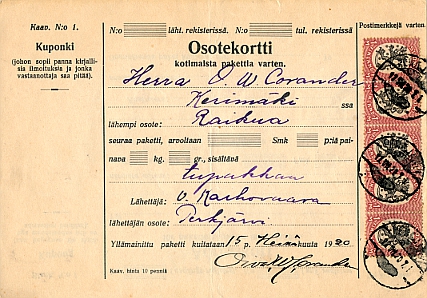 Kaav. N:o 1.
Kuponki
(johon sopii panna kirjalli-
sia ilmoituksia ja jonka
vastaanottaja saa pitää).
N:o läht. rekisterissä. N:o tul. rekisterissä.
Postimerkkejä varten.
Osotekortti
kotimaista pakettia varten.
Herra O W Corander
Kerimäki ssa
Raikua
lähempi osote:
seuraa paketti, arvoltaan Smk p:iä pai-
nava kg. gr., sisältävä
tupakkaa
Lähettäjä: O. Karhovaara
lähettäjän osote: Perkjärvi
Yllämainittu paketti kuitataan 15 p. Heinäkuuta 1920
Oiva W Corander
Kaav. hinta 10 penniä